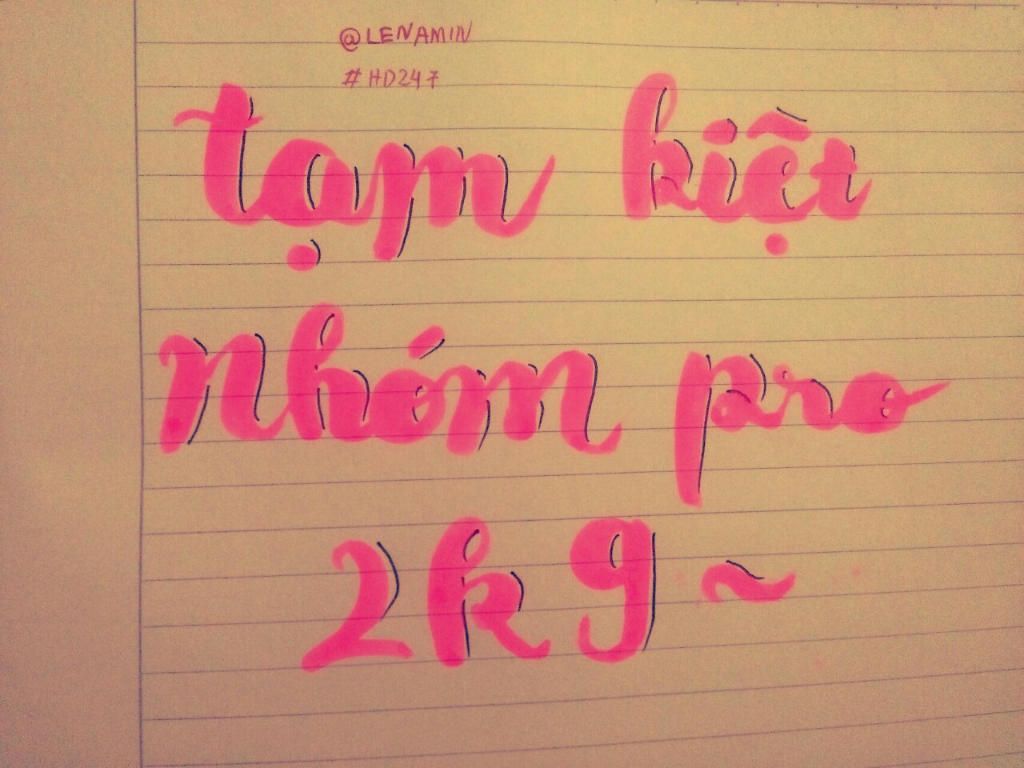 @LENAMIN
#HD247
tạm kiệt
Nhóm pro
2k9 ~